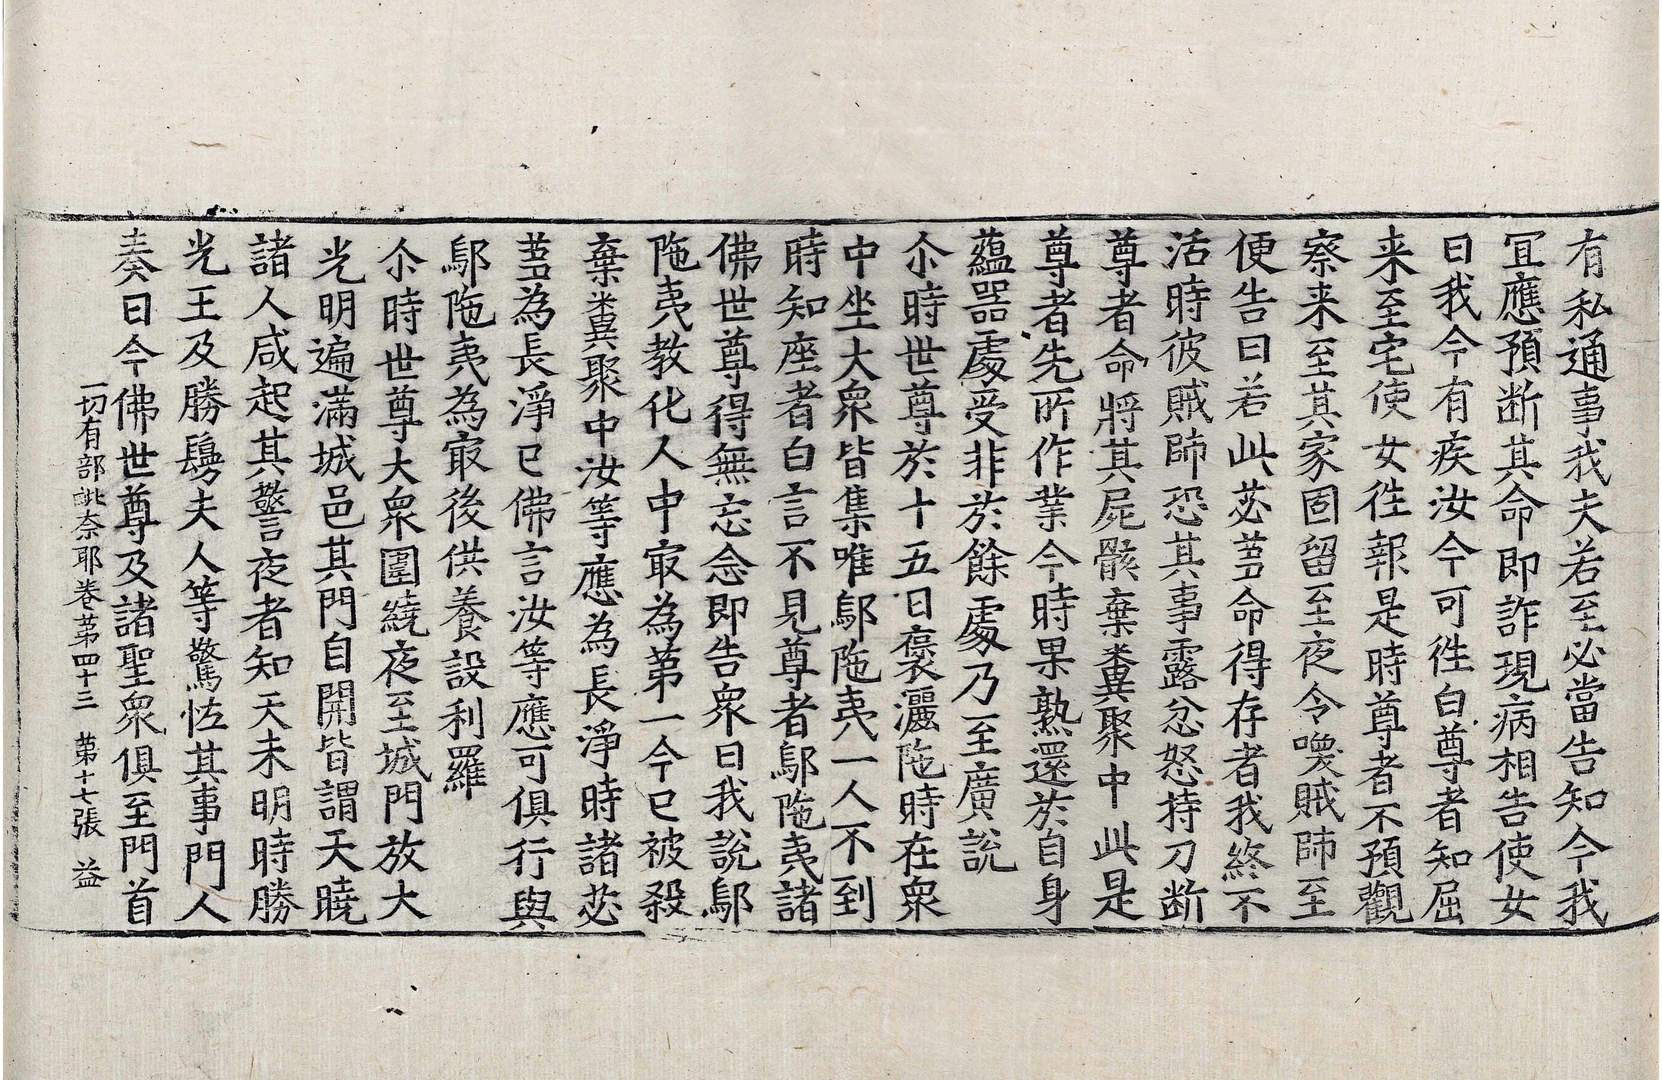 有私通事我夫若至必當告知今我
冝應預断其命即詐現病相告使女
曰我今有疾汝今可徃白尊者知屈
来至宅使女徃報是時尊者不預觀
察来至其家固留至夜令喚賊師至
便告曰若此苾蒭命得存者我終不
活時彼賊師恐其事露忿怒持刀断
尊者命將其屍骸棄糞聚中此是
尊者先所作業今時果熟還於自身
蘊器䖏受非於餘䖏乃至廣說
尒時世尊於十五日褒灑陁時在衆
中坐大衆皆集唯鄔陁夷一人不到
時知座者白言不見尊者鄔陁夷諸
佛世尊得無忘念即告衆曰我說鄔
陁夷教化人中㝡為第一今已被殺
棄糞聚中汝等應為長淨時諸苾
蒭為長淨已佛言汝等應可俱行與
鄔陁夷為㝡後供養設利羅
尒時世尊大衆圍繞夜至城門放大
光明遍滿城邑其門自開皆謂天曉
諸人咸起其警夜者知天未明時勝
光王及勝鬘夫人等驚恠其事門人
奏曰今佛世尊及諸聖衆俱至門首
一切有部毗奈耶卷第四十三 第十七張 益